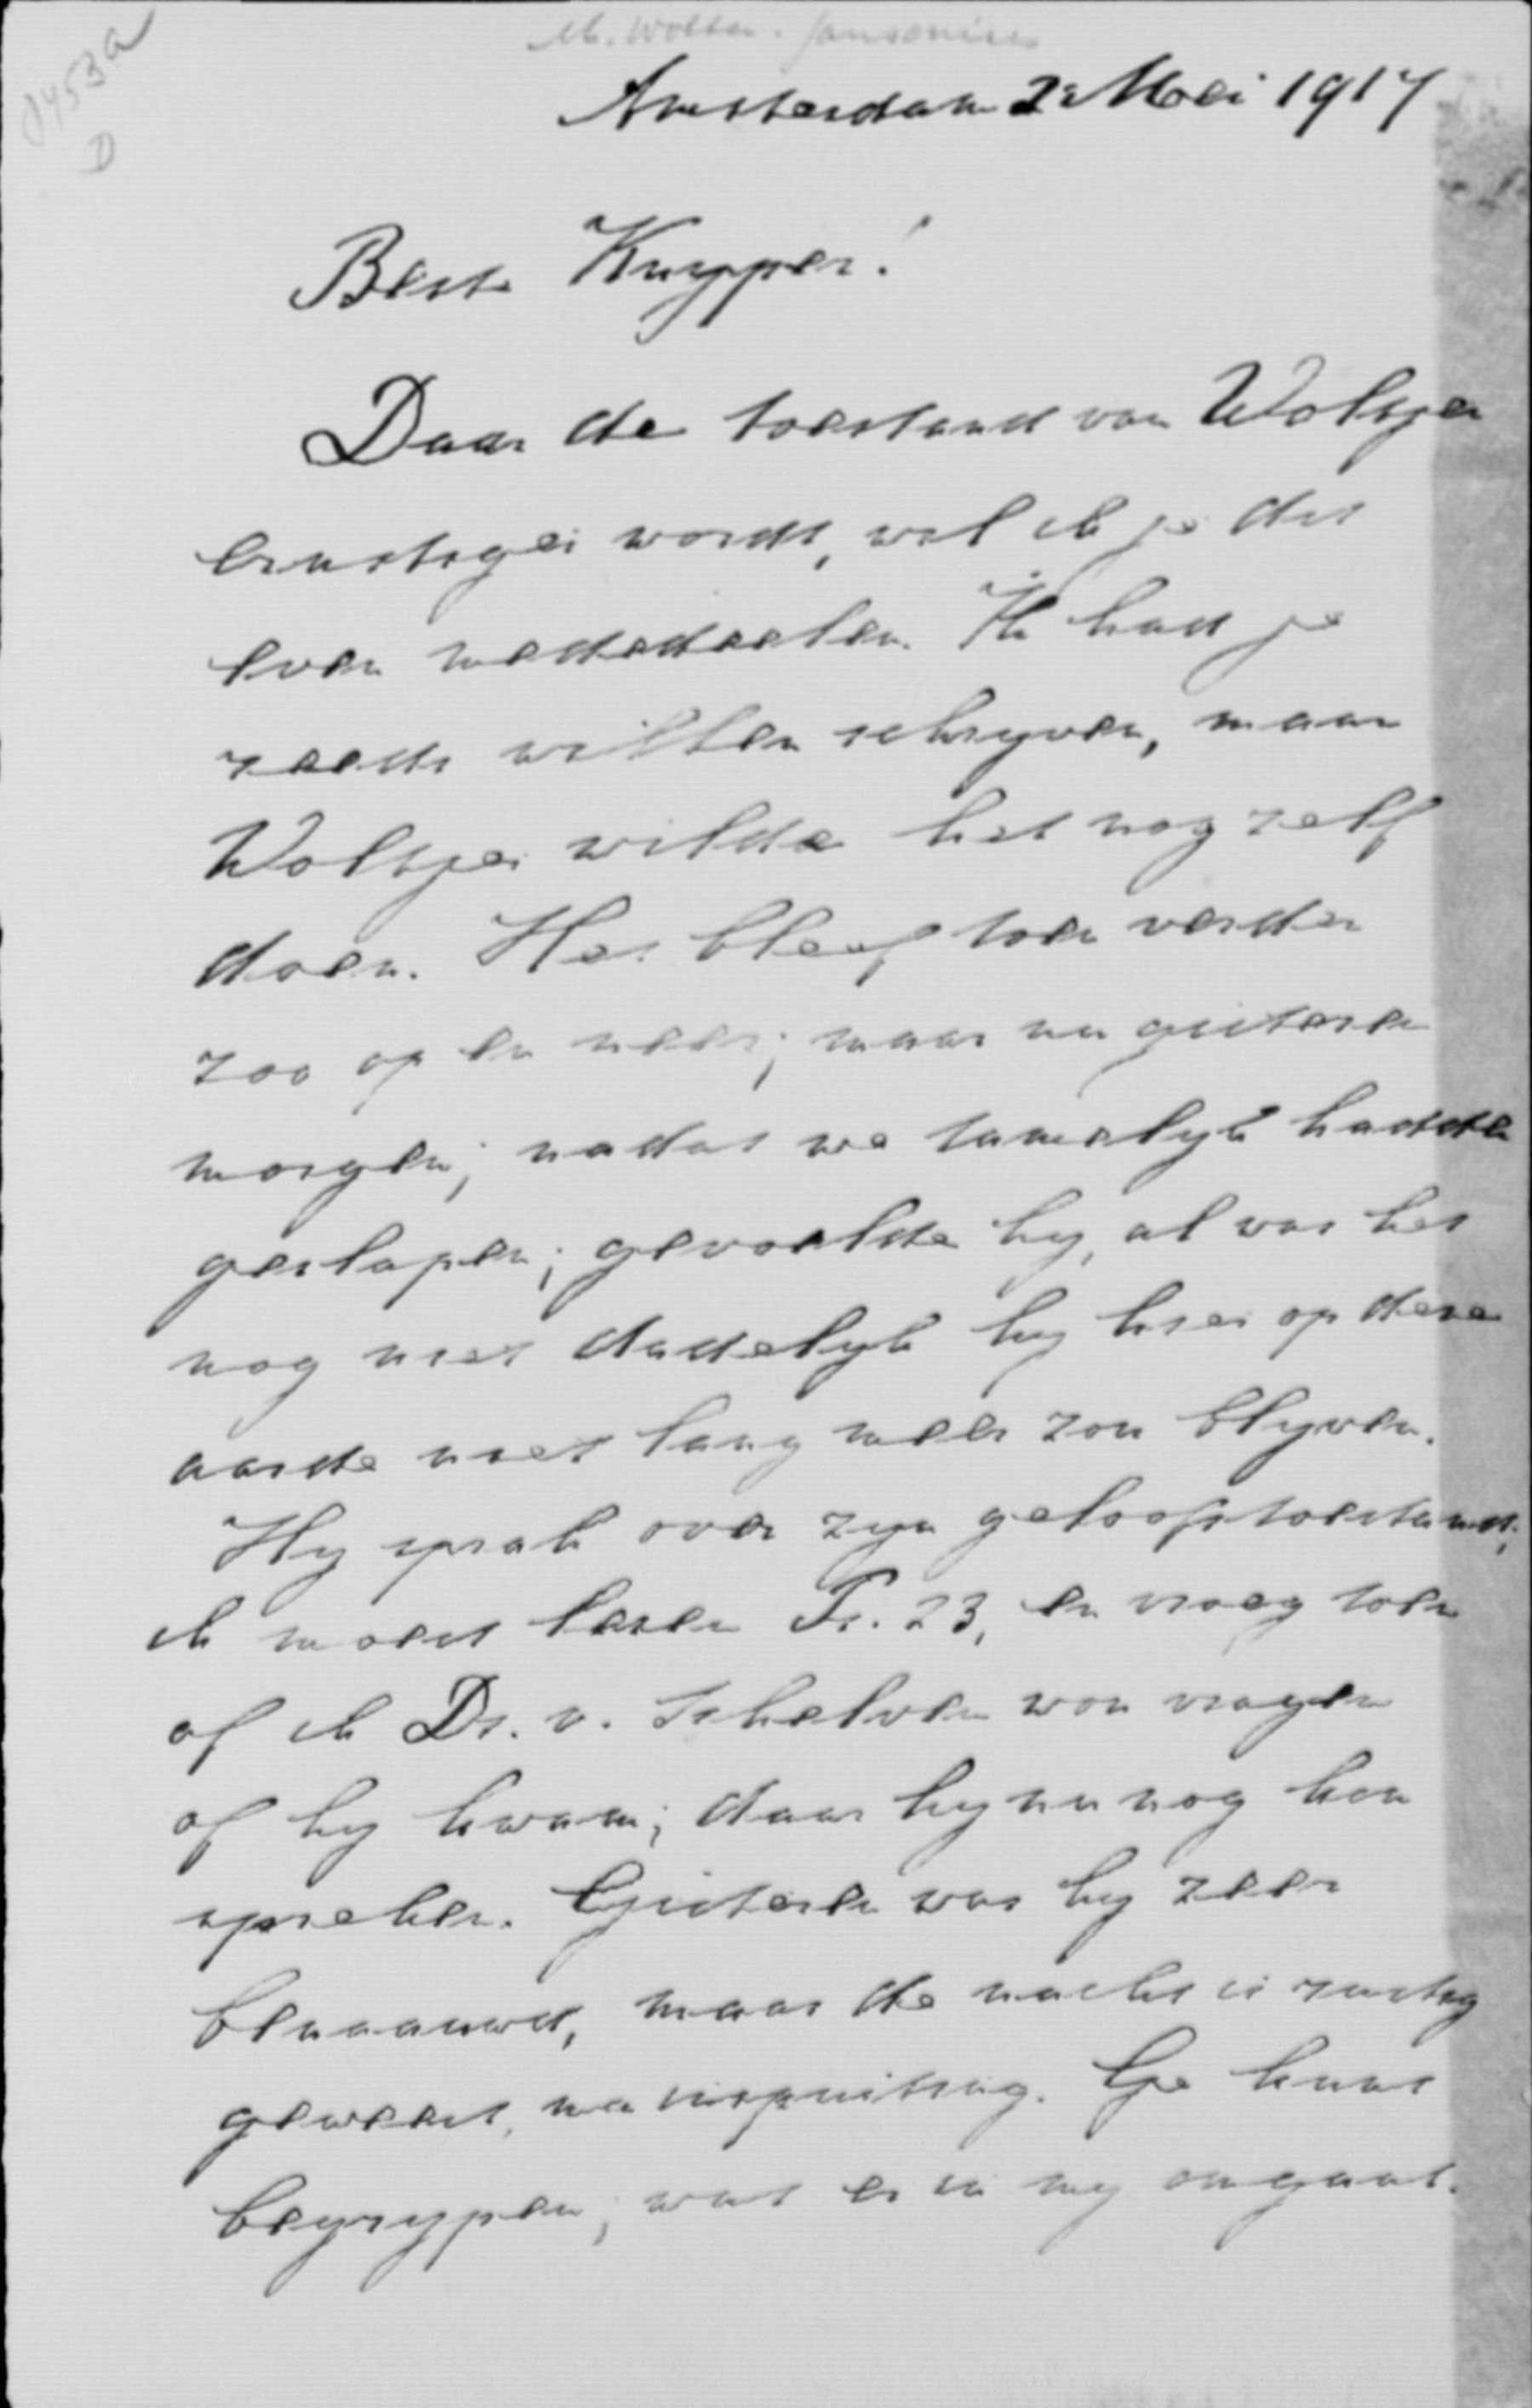 8453a
D
M. Woltjer-Jansonius
Amsterdam 2 Mei 1917
Beste Kuyper!
Daar de toestand van Woltjer
ernstiger wordt, wil ik je dit
even mededeelen. Ik had je
reeds willen schryven, maar
Woltjer wilde het nog zelf
doen. Het bleef toen verder
zoo op en neer; maar nu gisteren
morgen, nadat we tamelyk hadden
geslapen, gevoelde hy, al was het
nog niet dadelyk hy hier op deze
aarde niet lang meer zou blyven.
Hy sprak over zyn geloofstoestand,
ik moest lezen Ps. 23, en vroeg toen
of ik Ds. v. Schelven wou vragen
of hy kwam; daar hy nu nog kon
spreken. Gisteren was hy zeer
benaauwd, maar de nacht is rustig
geweest, na inspuiting. Ge kunt
begrypen, wat er in my omgaat.